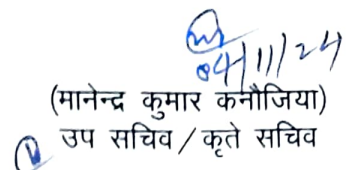 04/11/24
(मानेन्द्र कुमार कनौजिया)
उप सचिव / कृते सचिव